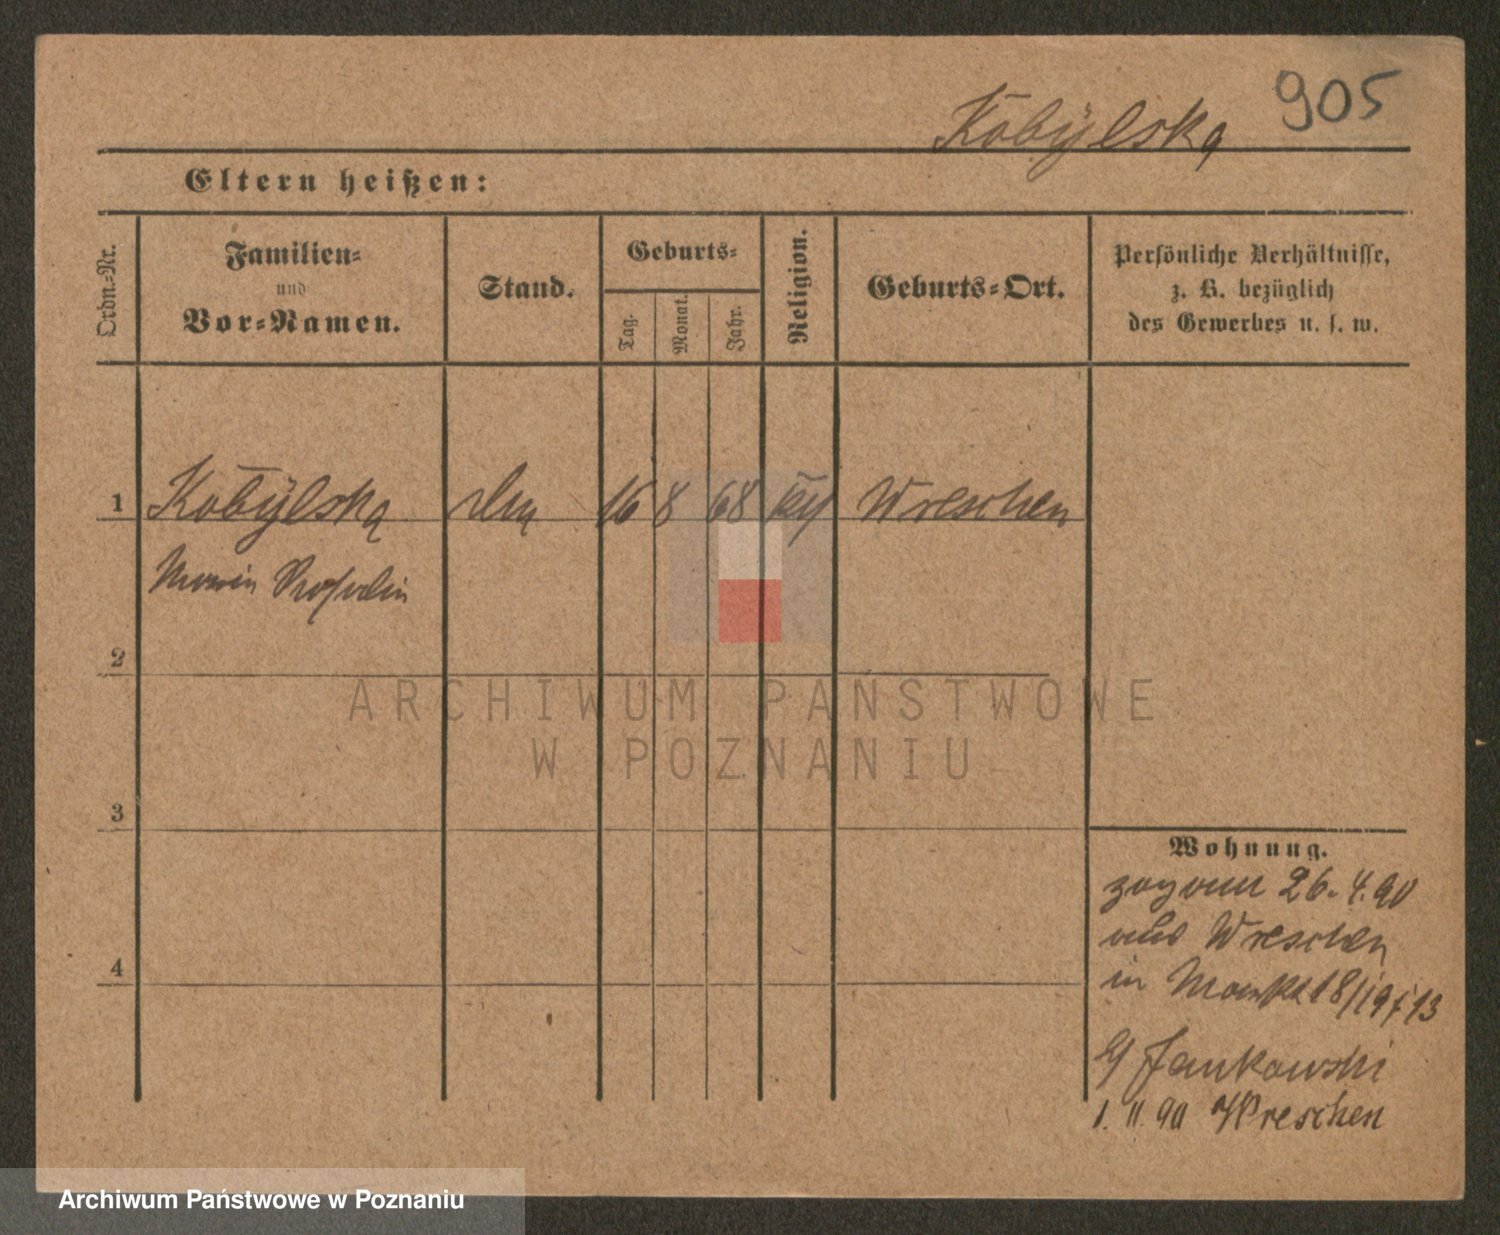 905
Kobylska
Eltern heißen:
Ordn.-Nr.
Familien-
und
Vor-Namen.
Stand.
Geburts-
Tag.
Monat.
Jahr.
Religion.
Geburts-Ort.
Persönliche Verhältnisse,
z. B. bezüglich
des Gewerbes u. s. w.
1 Kobylska 16 8 68 Wreschen
2
3
4
ARCHIWUM PAŃSTWOWE
W POZNANIU
Wohnung.
26. 4. 90
aus Wreschen
in Markt 18/19 13
Jankowski
1. 11. 90 Wreschen
Archiwum Państwowe w Poznaniu